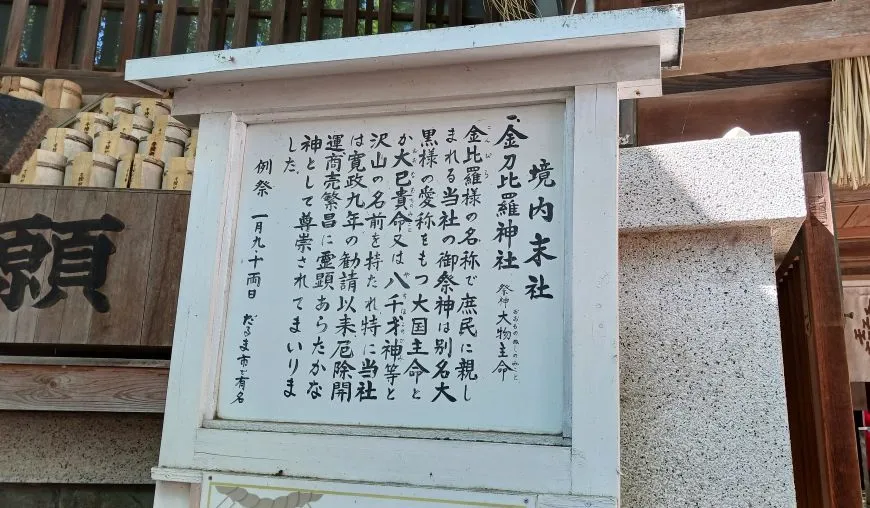 境内末社
一、金刀比羅神社 祭神 大物主命
おおものぬしのみこと
こんぴら
金比羅様の名称で庶民に親し
まれる当社の御祭神は別名大
黒様の愛称をもつ大国主命と
か大己貴命又は八千矛神等と
沢山の名前を持たれ特に当社
は寛政九年の勧請以来、厄除開
運、商売繁昌に霊顕あらたかな
神として尊崇されてまいりま
した。
例祭 一月九・十両日 だるま市で有名
願